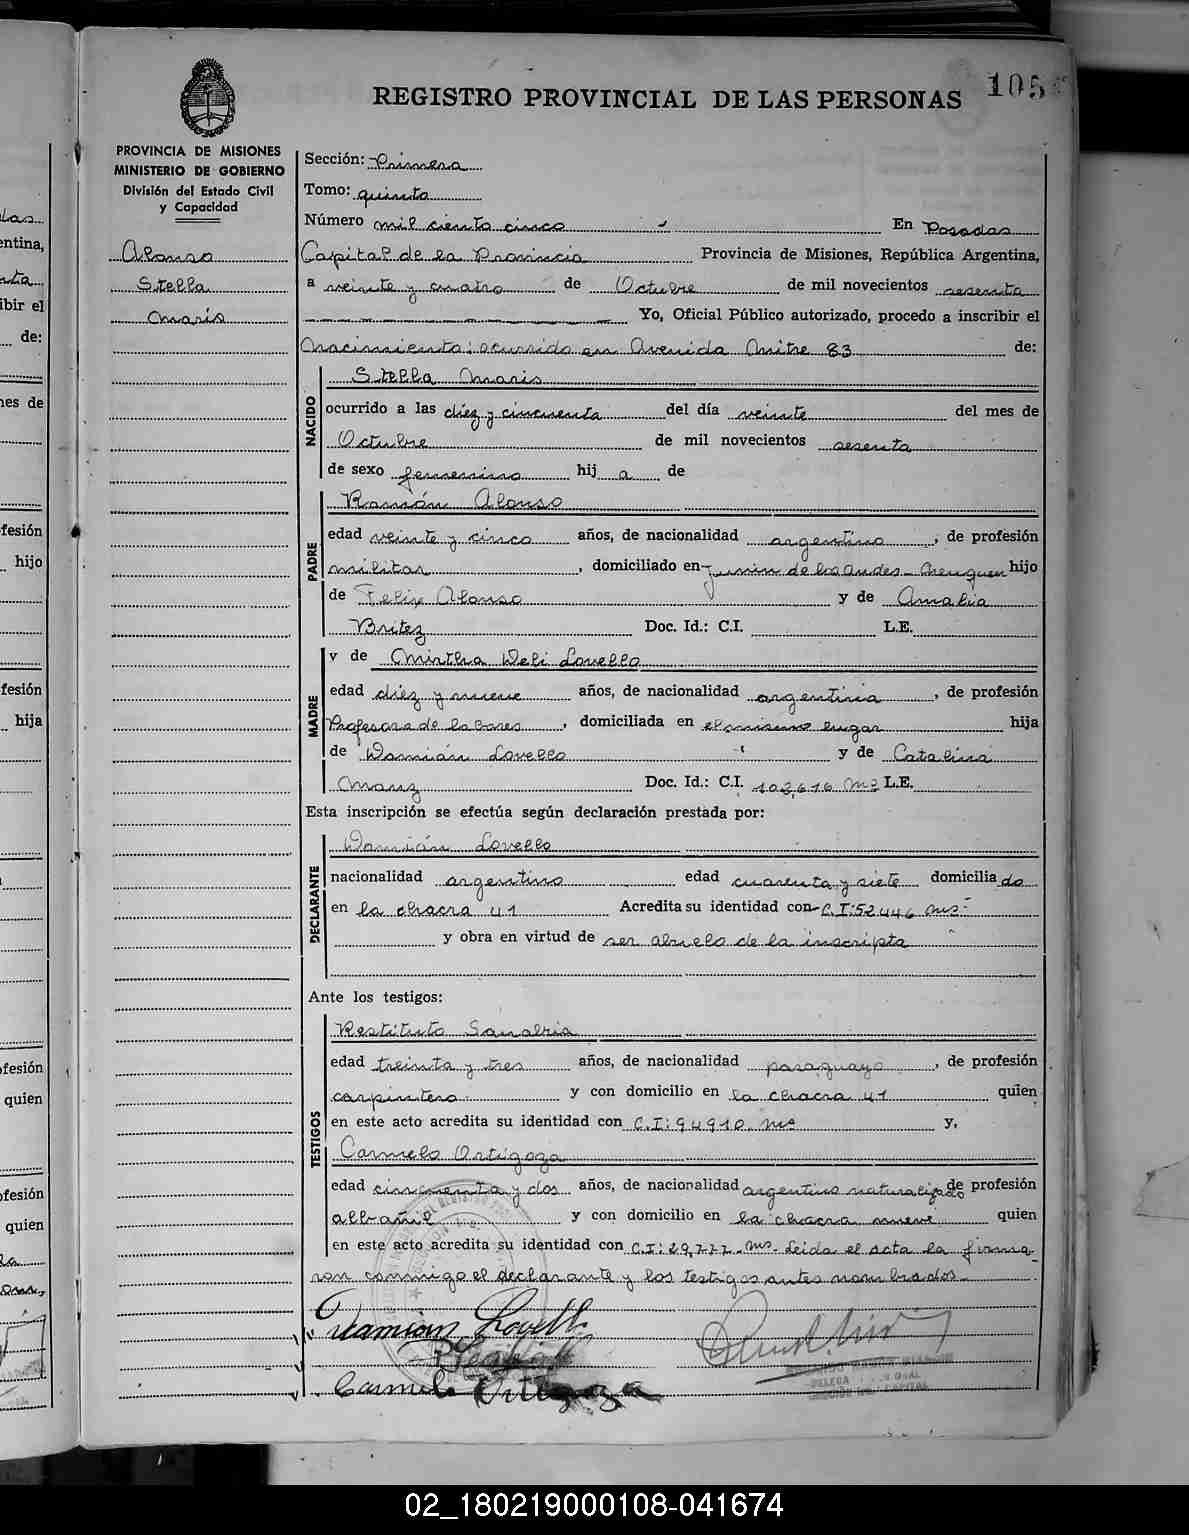 105
REGISTRO PROVINCIAL DE LAS PERSONAS
PROVINCIA DE MISIONES
MINISTERIO DE GOBIERNO
División del Estado Civil
y Capacidad
Alonso
Stella
Maris
Sección: Primera
Tomo: quinto
Número mil ciento cinco En Posadas
Capital de la Provincia Provincia de Misiones, República Argentina,
a veinte y cuatro de Octubre de mil novecientos sesenta
Yo, Oficial Público autorizado, procedo a inscribir el
Nacimiento: ocurrido en Avenida Mitre 83 de:
NACIDO
Stella Maris
ocurrido a las diez y cincuenta del día veinte del mes de
Octubre de mil novecientos sesenta
de sexo femenino hij a de
PADRE
Ramón Alonso
edad veinte y cinco años, de nacionalidad argentino, de profesión
militar, domiciliado en Junín de los Andes - Neuquen hijo
de Felix Alonso y de Amalia
Britez Doc. Id.: C.I. L.E.
MADRE
y de Mirtha Deli Lovello
edad diez y nueve años, de nacionalidad argentina, de profesión
Profesora de labores, domiciliada en el mismo lugar hija
de Damián Lovello y de Catalina
Manz Doc. Id.: C.I. 103,616 Ms L.E.
Esta inscripción se efectúa según declaración prestada por:
DECLARANTE
Damián Lovello
nacionalidad argentino edad cuarenta y siete domicilia do
en la chacra 41 Acredita su identidad con C.I: 52446 Ms-
y obra en virtud de ser abuelo de la inscripta
Ante los testigos:
TESTIGOS
Restituto Sanabria
edad treinta y tres años, de nacionalidad paraguayo, de profesión
carpintero y con domicilio en la chacra 41 quien
en este acto acredita su identidad con C.I: 94910 Ms y,
Carmelo Ortigoza
edad cincuenta y dos años, de nacionalidad argentino naturalizado de profesión
albañil y con domicilio en la chacra nueve quien
en este acto acredita su identidad con C.I: 29,777 - Ms. Leida el acta la firma
ron conmigo el declarante y los testigos antes nombrados-
Damian Lovello
Carmelo Ortigoza
02_180219000108-041674